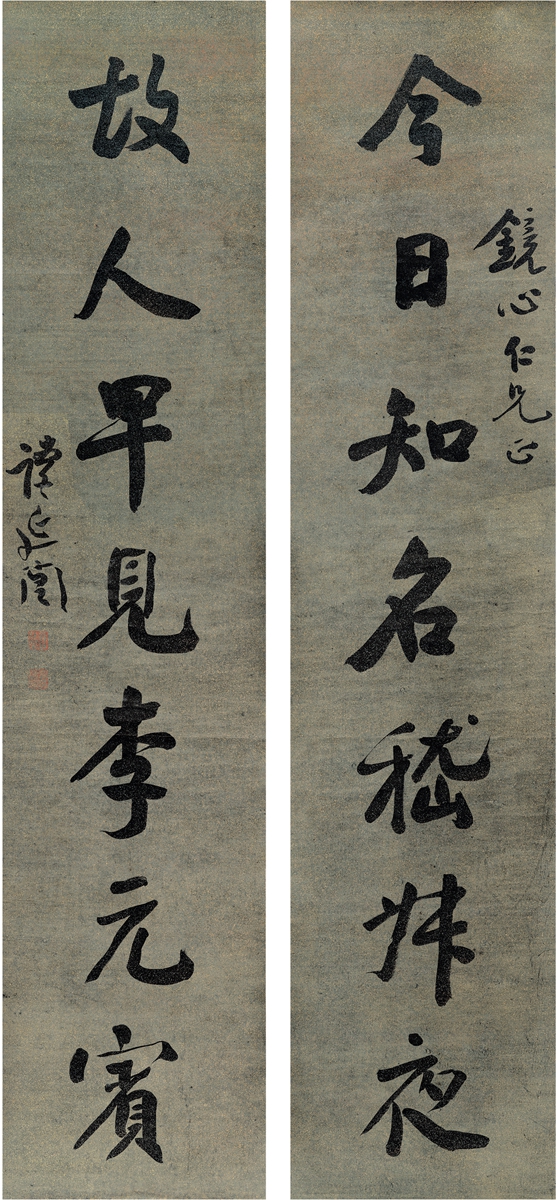 鏡心仁兄正
今日知名嵇叔夜
故人早見李元賓
譚延闓